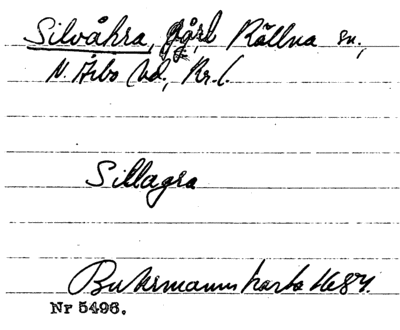 Silvåkra, gård, Källna sn.,
N. Åsbo hd., Kr. l.
Sillagra
Buhrmanns karta 1684.
Nr 5496.